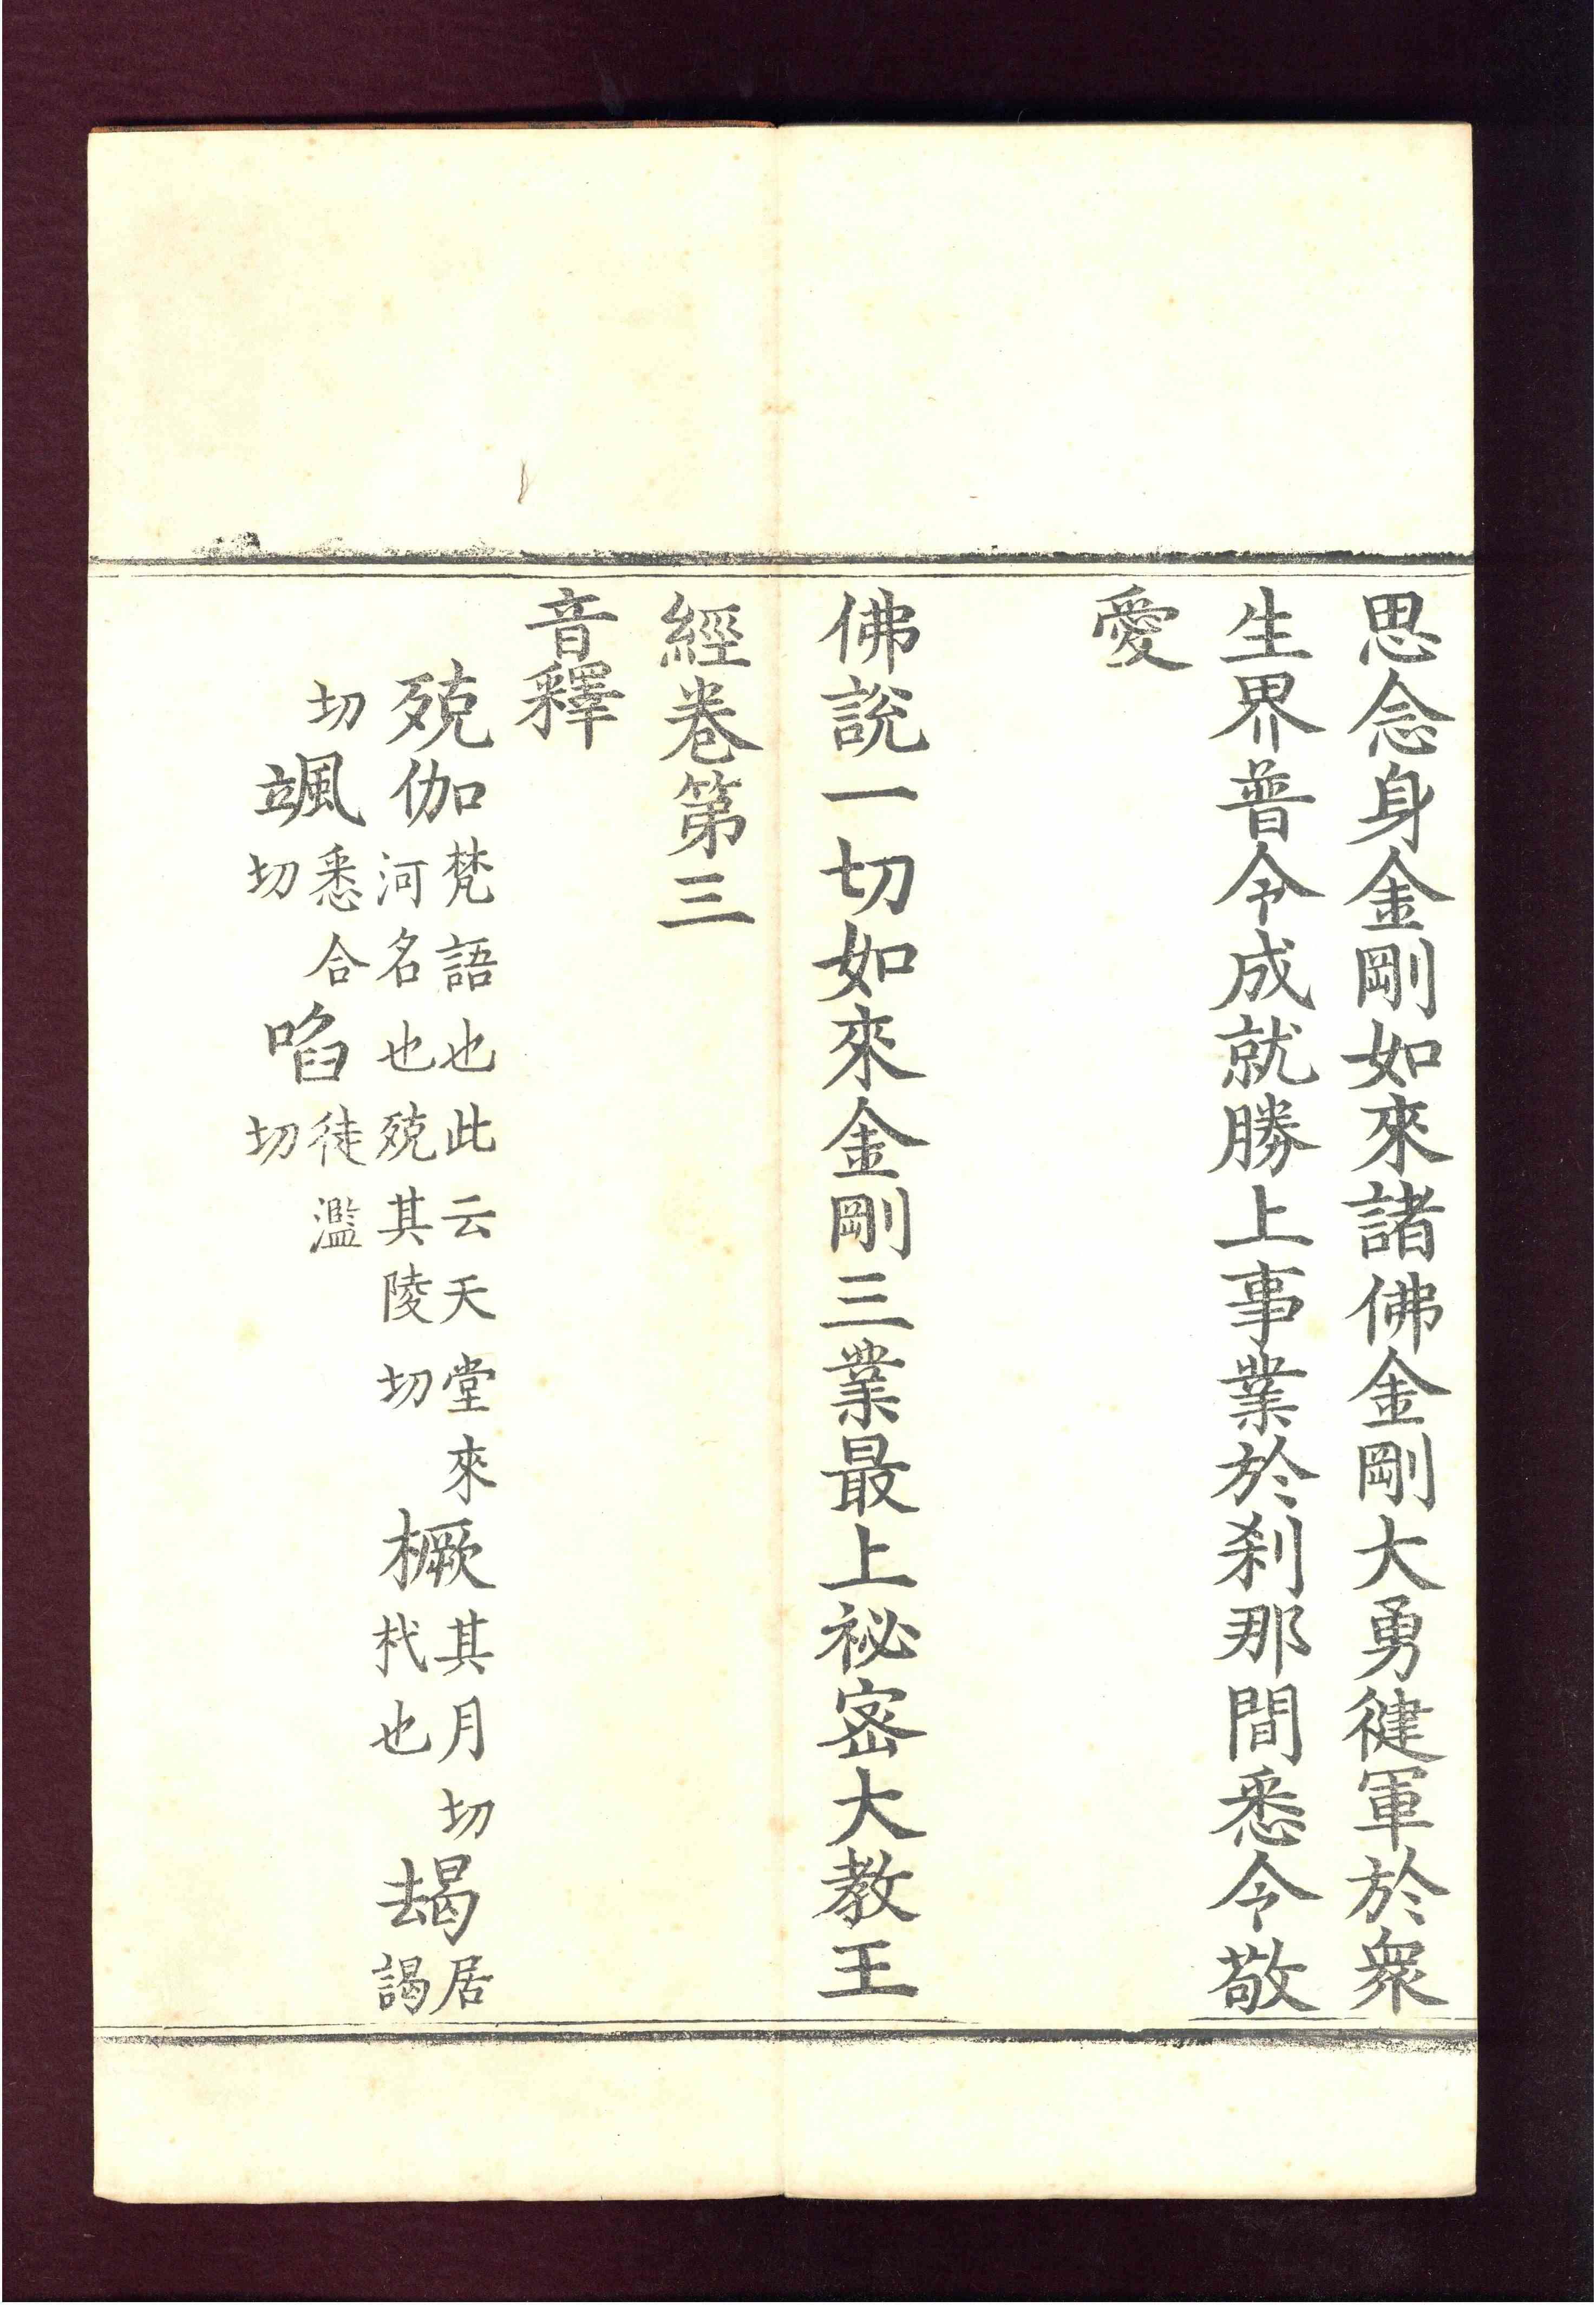 思念身金剛如來諸佛金剛大勇徤軍於衆
生界普令成就勝上事業於刹那間悉令敬
愛
佛說一切如來金剛三業最上祕宻大教王
經卷第三
音釋
殑伽梵語也此云天堂來河名也殑其陵切橛其月切杙也朅居謁
切颯悉合切啗徒濫切